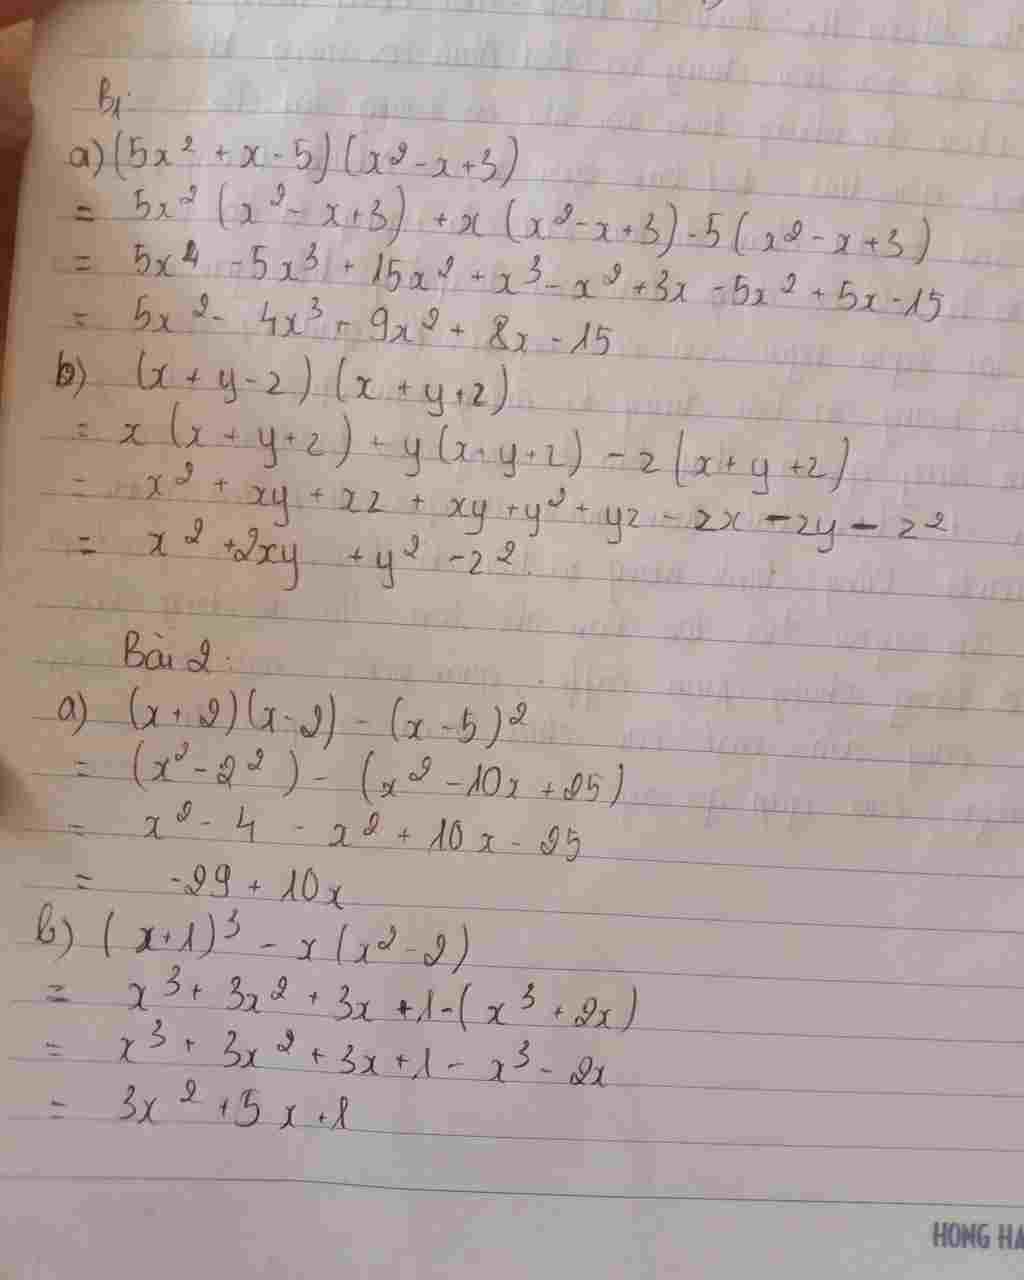 B1:
a) (5x² + x - 5) (x² - x + 3)
= 5x² (x² - x + 3) + x (x² - x + 3) - 5 (x² - x + 3)
= 5x⁴ - 5x³ + 15x² + x³ - x² + 3x - 5x² + 5x - 15
= 5x² - 4x³ + 9x² + 8x - 15
b) (x + y - z) (x + y + z)
= x (x + y + z) + y (x + y + z) - z (x + y + z)
= x² + xy + xz + xy + y² + yz - zx - zy - z²
= x² + 2xy + y² - z²
Bài 2:
a) (x + 2) (x - 2) - (x - 5)²
= (x² - 2²) - (x² - 10x + 25)
= x² - 4 - x² + 10x - 25
= -29 + 10x
b) (x + 1)³ - x (x² - 2)
= x³ + 3x² + 3x + 1 - (x³ + 2x)
= x³ + 3x² + 3x + 1 - x³ - 2x
= 3x² + 5x + 1
HONG HA